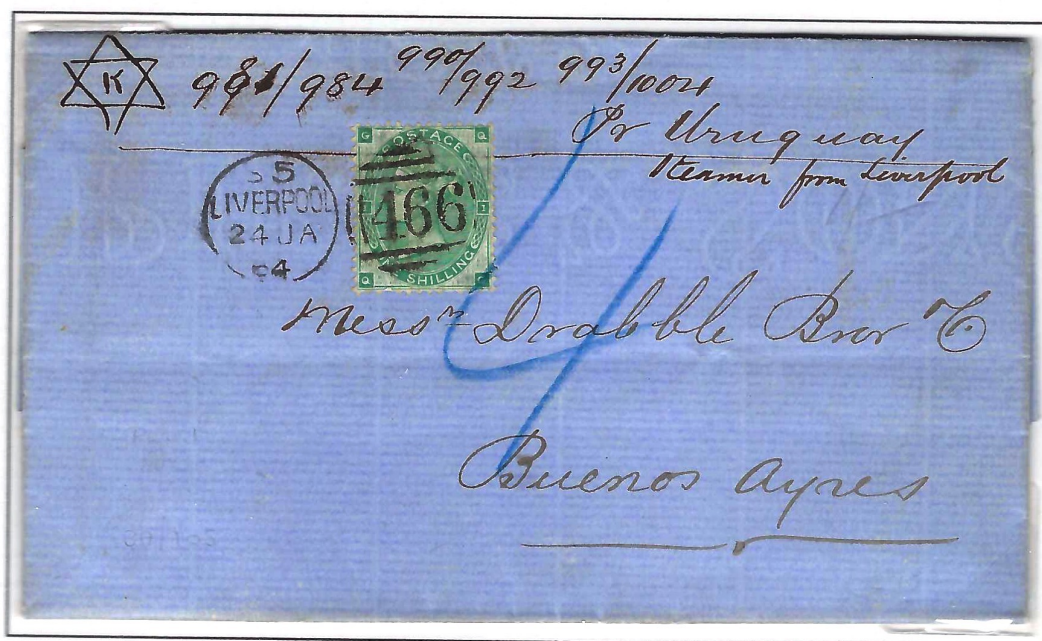 K 981/984 990/992 993/1004
Pr Uruguay
Steamer from Liverpool
5
LIVERPOOL
24 JA
4
G POSTAGE Q
466
SHILLING
Q G
Messrs Drabble Bror Co
4
Buenos Ayres